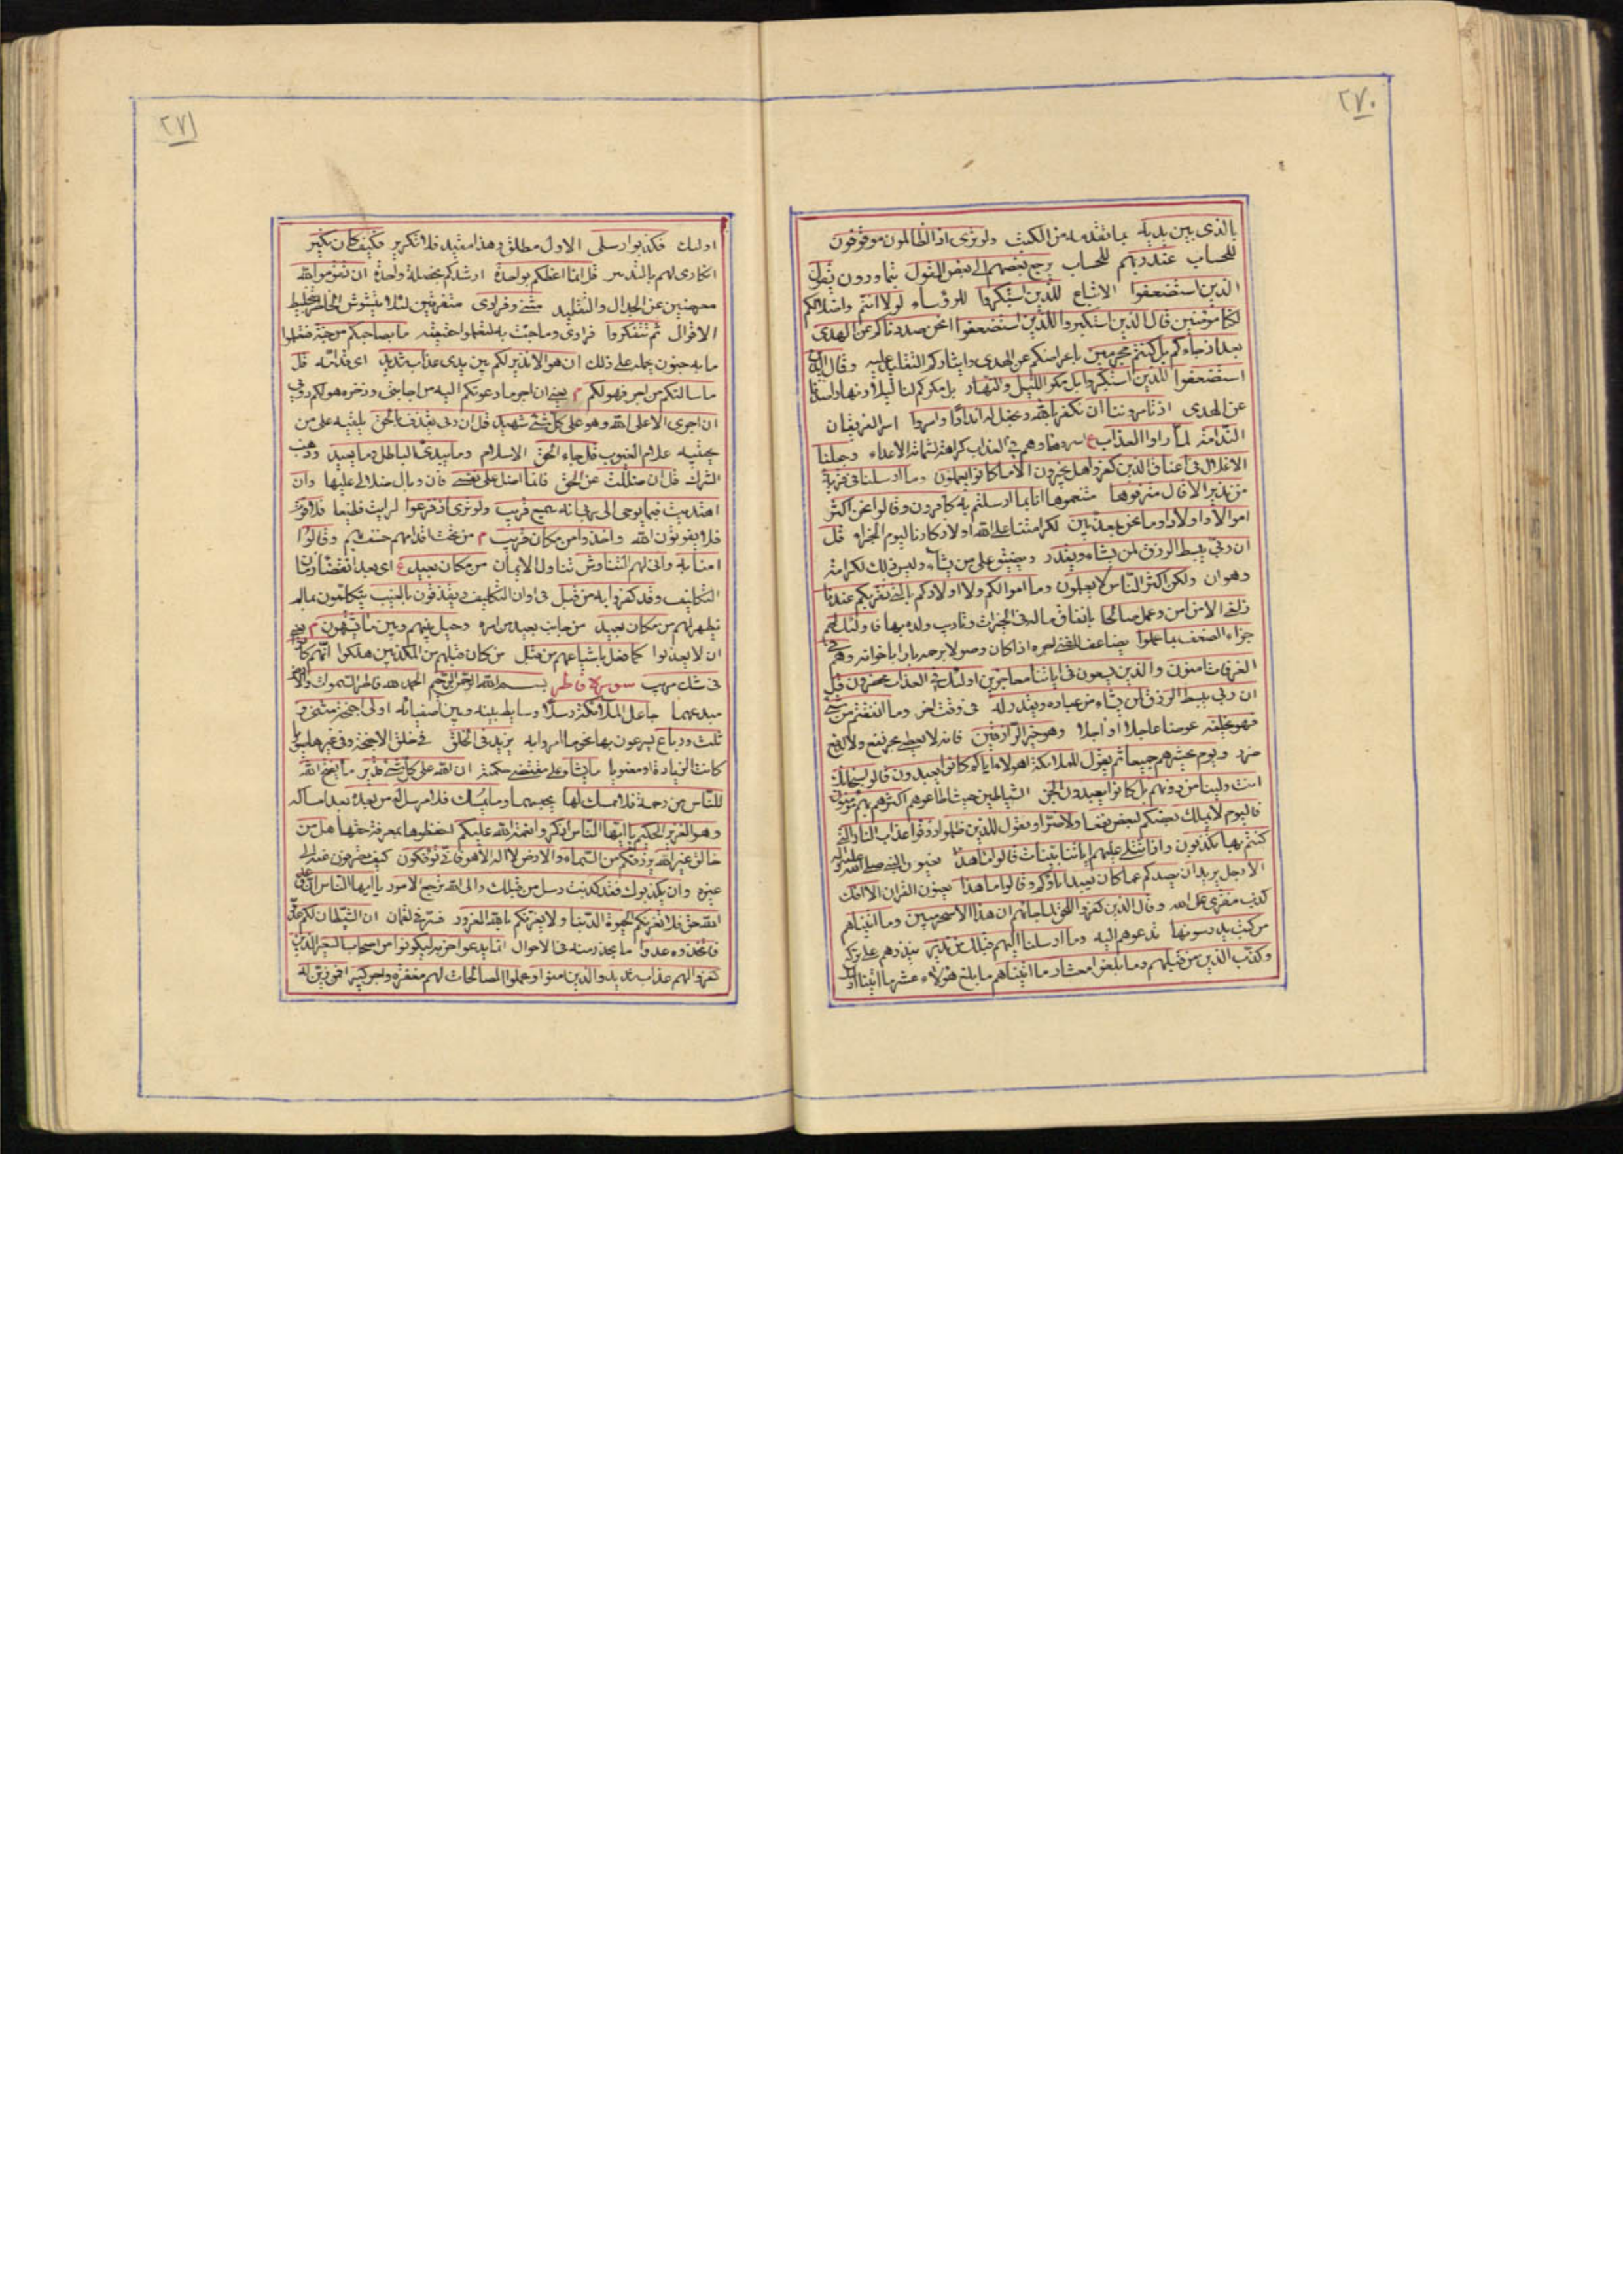 ٢٧٠
بالذی بین یدیه بما تقدمه من الکتب ولو تری اذ الظالمون موقوفون
للحساب عند ربهم للحساب یرجع بعضهم الی بعض القول یتحاورون یقول
الذین استضعفوا الاتباع للذین استکبروا للرؤساء لولا انتم واضلالکم
لکنا مؤمنین قال الذین استکبروا للذین استضعفوا انحن صددناکم عن الهدی
بعد اذ جاءکم بل کنتم مجرمین باعراضکم عن الهدی وایثارکم التقلید علیه وقال الذین
استضعفوا للذین استکبروا بل مکر اللیل والنهار بل مکرکم لنا لیلا ونهارا
عن الهدی اذ تامروننا ان نکفر بالله ونجعل له اندادا واسروا اسر الفریقان
الندامة لما راوا العذاب وهم فی العذاب کراهة لشماتة الاعداء وجعلنا
الاغلال فی اعناق الذین کفروا هل یجزون الا ما کانوا یعملون وما ارسلنا فی قریة
من نذیر الا قال مترفوها متنعموها انا بما ارسلتم به کافرون وقالوا نحن اکثر
اموالا واولادا وما نحن بمعذبین لکرامتنا علی الله قل
ان ربی یبسط الرزق لمن یشاء ویقدر ویضیق علی من یشاء ولیس ذلک لکرامة
وهوان ولکن اکثر الناس لا یعلمون وما اموالکم ولا اولادکم بالتی تقربکم عندنا
زلفی الا من امن وعمل صالحا بانفاق ماله فی الخیرات وتادیب ولده فاولئک لهم
جزاء الضعف بما عملوا یضاعف للغنی اجره اذا کان وصولا برحمه بارا باخوانه وهم فی
الغرفات امنون والذین یسعون فی ایاتنا معاجزین اولئک فی العذاب محضرون قل
ان ربی یبسط الرزق لمن یشاء من عباده ویقدر له فی وقت اخر وما انفقتم من شئ
فهو یخلفه عوضا عاجلا او اجلا وهو خیر الرازقین
ویوم یحشرهم جمیعا ثم یقول للملائکة اهؤلاء ایاکم کانوا یعبدون قالوا سبحانک
انت ولینا من دونهم بل کانوا یعبدون الجن الشیاطین حیث اطاعوهم اکثرهم بهم مؤمنون
فالیوم لا یملک بعضکم لبعض نفعا ولا ضرا ونقول للذین ظلموا ذوقوا عذاب النار التی
کنتم بها تکذبون واذا تتلی علیهم ایاتنا بینات قالوا ما هذا یعنون النبی صلی الله علیه واله
الا رجل یرید ان یصدکم عما کان یعبد اباؤکم وقالوا ما هذا یعنون القران الا افک
کذب مفتری علی الله وقال الذین کفروا للحق لما جاءهم ان هذا الا سحر مبین وما اتیناهم
من کتب یدرسونها تدعوهم الیه وما ارسلنا الیهم قبلک من نذیر ینذرهم علی ترکه
وکذب الذین من قبلهم وما بلغوا معشار ما اتیناهم ما بلغ هؤلاء عشر ما اتینا
٢٧١
اولئک فکذبوا رسلی الاول مطلق وهذا مقید فلا تکریر فکیف کان نکیر
انکاری لهم بالتدمیر قل انما اعظکم بواحدة ارشدکم بخصلة واحدة ان تقوموا لله
معرضین عن الجدال والتقلید مثنی وفرادی متفرقین لئلا یشوش الخاطر
الاقوال ثم تتفکروا فی امری وما جئت به لتعلموا حقیقته ما بصاحبکم من جنة فتعلموا
ما به جنون یحمله علی ذلک ان هو الا نذیر لکم بین یدی عذاب شدید ای قدامه قل
ما سالتکم من اجر فهو لکم یعنی ان اجر ما دعوتکم الیه من اجابتی وذخره هو لکم دونی
ان اجری الا علی الله وهو علی کل شئ شهید قل ان ربی یقذف بالحق یلقیه علی من
یجتبیه علام الغیوب قل جاء الحق الاسلام وما یبدئ الباطل وما یعید وذهب
الشرک قل ان ضللت عن الحق فانما اضل علی نفسی فان وبال ضلالی علیها وان
اهتدیت فبما یوحی الی ربی انه سمیع قریب ولو تری اذ فزعوا لرایت فظیعا فلا فوت
فلا یفوتون الله واخذوا من مکان قریب من تحت اقدامهم خسف بهم وقالوا
امنا به وانی لهم التناوش تناول الایمان من مکان بعید ای بعد انقضاء زمان
التکلیف وقد کفروا به من قبل فی اوان التکلیف ویقذفون بالغیب یتکلمون بما لم
یظهر لهم من مکان بعید من جانب بعید من امره وحیل بینهم وبین ما یشتهون یعنی
ان لا یعذبوا کما فعل باشیاعهم من قبل من کان قبلهم من المکذبین هلکوا انهم کانوا
فی شک مریب سورة فاطر بسم الله الرحمن الرحیم الحمد لله فاطر السموات والارض
مبدعهما جاعل الملائکة رسلا وسایط بینه وبین اصفیائه اولی اجنحة مثنی و
ثلث ورباع یسرعون بها نحو ما امروا به یزید فی الخلق فی خلق الاجنحة وفی غیرها
کانت الزیادة او معنویا ما یشاء علی مقتضی حکمته ان الله علی کل شئ قدیر ما یفتح الله
للناس من رحمة فلا ممسک لها یحبسها وما یمسک فلا مرسل له من بعده بعد امساکه
وهو العزیز الحکیم یا ایها الناس اذکروا نعمة الله علیکم احفظوها بمعرفة حقها هل من
خالق غیر الله یرزقکم من السماء والارض لا اله الا هو فانی تؤفکون کیف تصرفون عنه الی
غیره وان یکذبوک فقد کذبت رسل من قبلک والی الله ترجع الامور یا ایها الناس ان وعد
الله حق فلا تغرنکم الحیوة الدنیا ولا یغرنکم بالله الغرور ان الشیطان لکم عدو
فاتخذوه عدوا ما یحذر منه فی الاحوال انما یدعوا حزبه لیکونوا من اصحاب السعیر الذین
کفروا لهم عذاب شدید والذین امنوا وعملوا الصالحات لهم مغفرة واجر کبیر افمن زین له